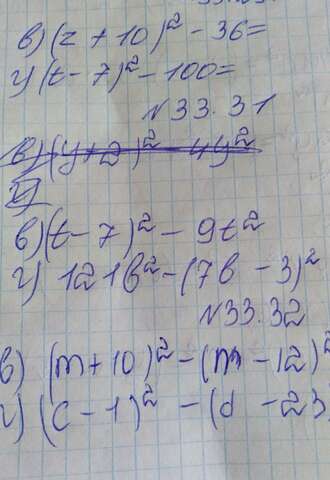 в) (z + 10)² - 36 =
г) (t - 7)² - 100 =
№ 33.31
в) (y + 2)² - 4y²
г)
в) (t - 7)² - 9t²
г) 121b² - (7b - 3)²
№ 33.32
в) (m + 10)² - (m - 12)²
г) (c - 1)² - (d - 23